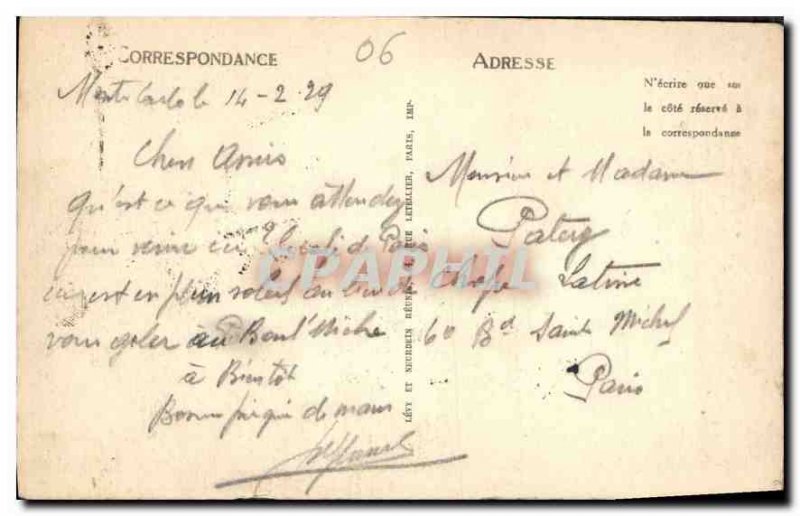 CORRESPONDANCE
06
Monte Carlo le 14-2-29
Chers Amis
qu'est ce que vous attendez
pour venir ici
est en plein soleil au lieu de
vous geler au Boul'Miche
à Bientôt
Bonne de mains
LÉVY ET NEURDEIN RÉUNIS, 44, RUE LETELLIER, PARIS, IMP.
ADRESSE
N'écrire que sur
le côté réservé à
la correspondance
Monsieur et Madame
Latine
60 Bd Saint Michel
Paris
CPAPHIL